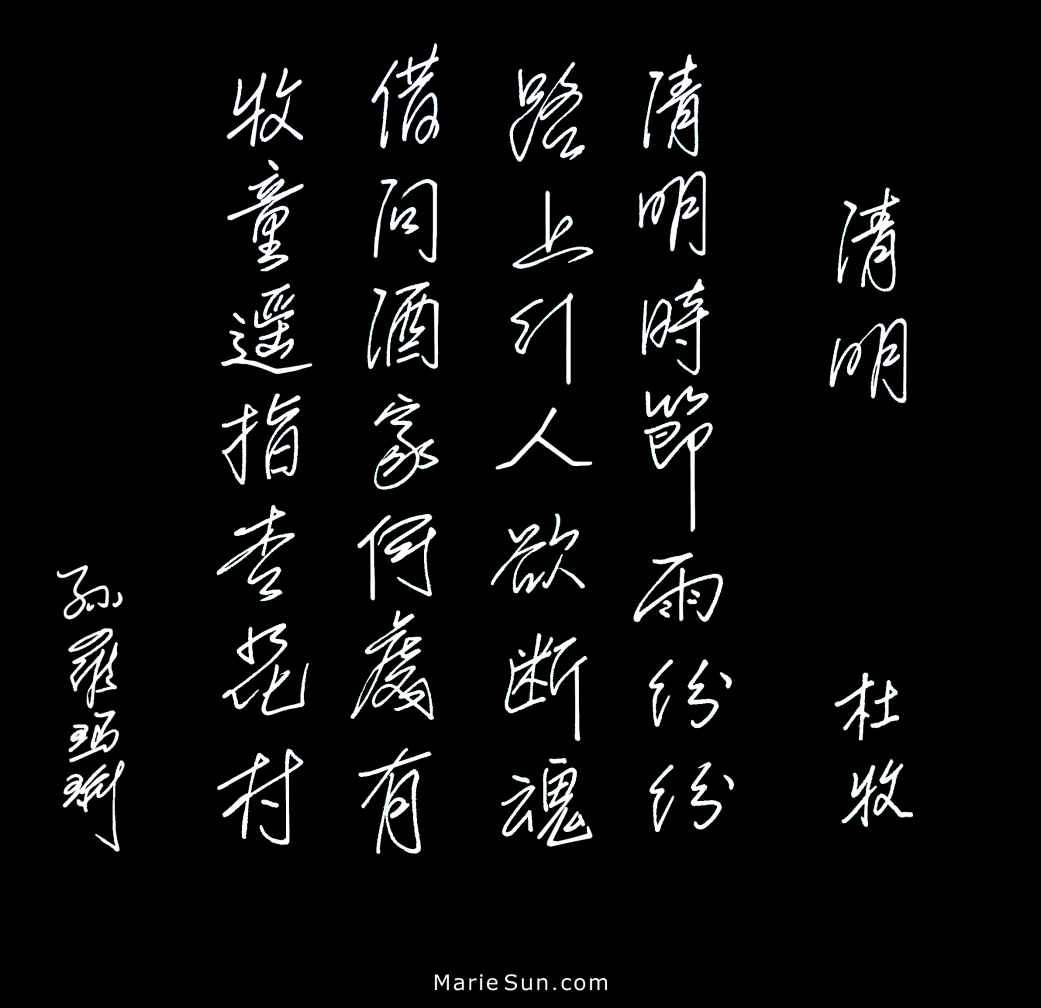 清明
杜牧
清明時節雨紛紛
路上行人欲断魂
借問酒家何處有
牧童遥指杏花村
孫羅瑪琍
MarieSun.com